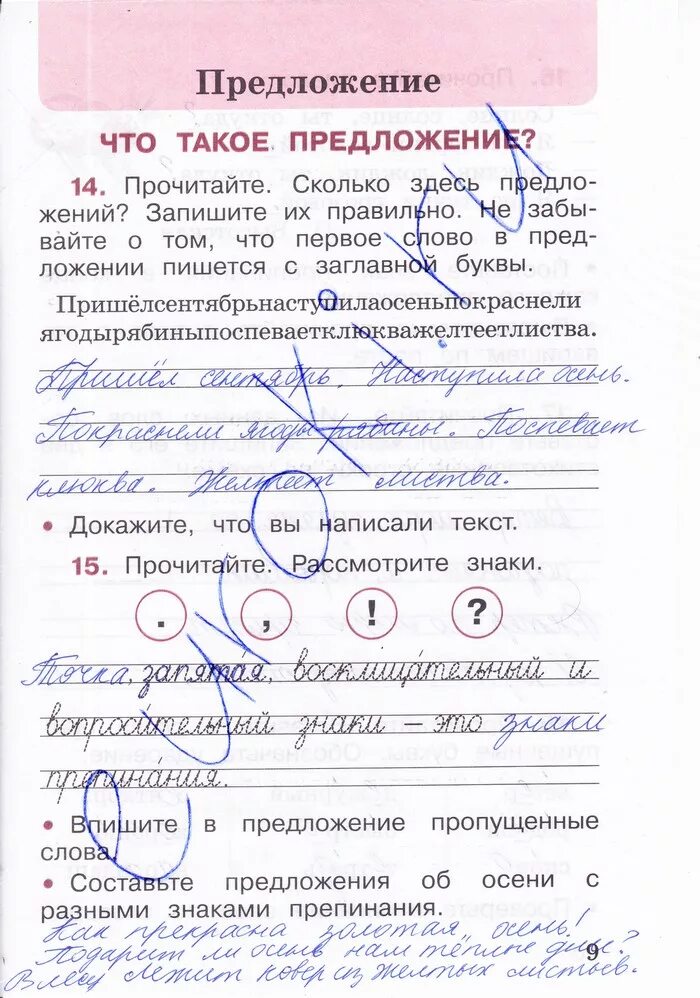 Предложение
ЧТО ТАКОЕ ПРЕДЛОЖЕНИЕ?
14. Прочитайте. Сколько здесь предло-
жений? Запишите их правильно. Не забы-
вайте о том, что первое слово в пред-
ложении пишется с заглавной буквы.
Пришёлсентябрьнаступилаосеньпокраснели
ягодырябиныпоспеваетклюкважелтеетлиства.
Пришёл сентябрь. Наступила осень.
Покраснели ягоды рябины. Поспевает
клюква. Желтеет листва.
• Докажите, что вы написали текст.
15. Прочитайте. Рассмотрите знаки.
. , ! ?
Точка, запята́я, восклица́тельный и
вопроси́тельный знаки – это знаки
препина́ния.
• Впишите в предложение пропущенные
слова.
• Составьте предложения об осени с
разными знаками препинания.
Как прекрасна золотая осень!
Подарит ли осень нам тёплые дни?
В лесу лежит ковёр из желтых листьев.
9